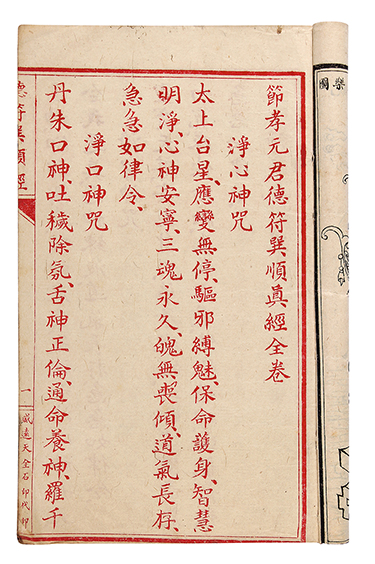 節孝元君德符巽順真經全卷
淨心神咒
太上台星、應變無停、驅邪縛魅、保命護身、智慧
明淨、心神安寧、三魂永久、魄無喪傾、道氣長存、
急急如律令、
淨口神咒
丹朱口神、吐穢除氛、舌神正倫、通命養神、羅千
德符巽順經
一
威遠天全石印代印
樂園